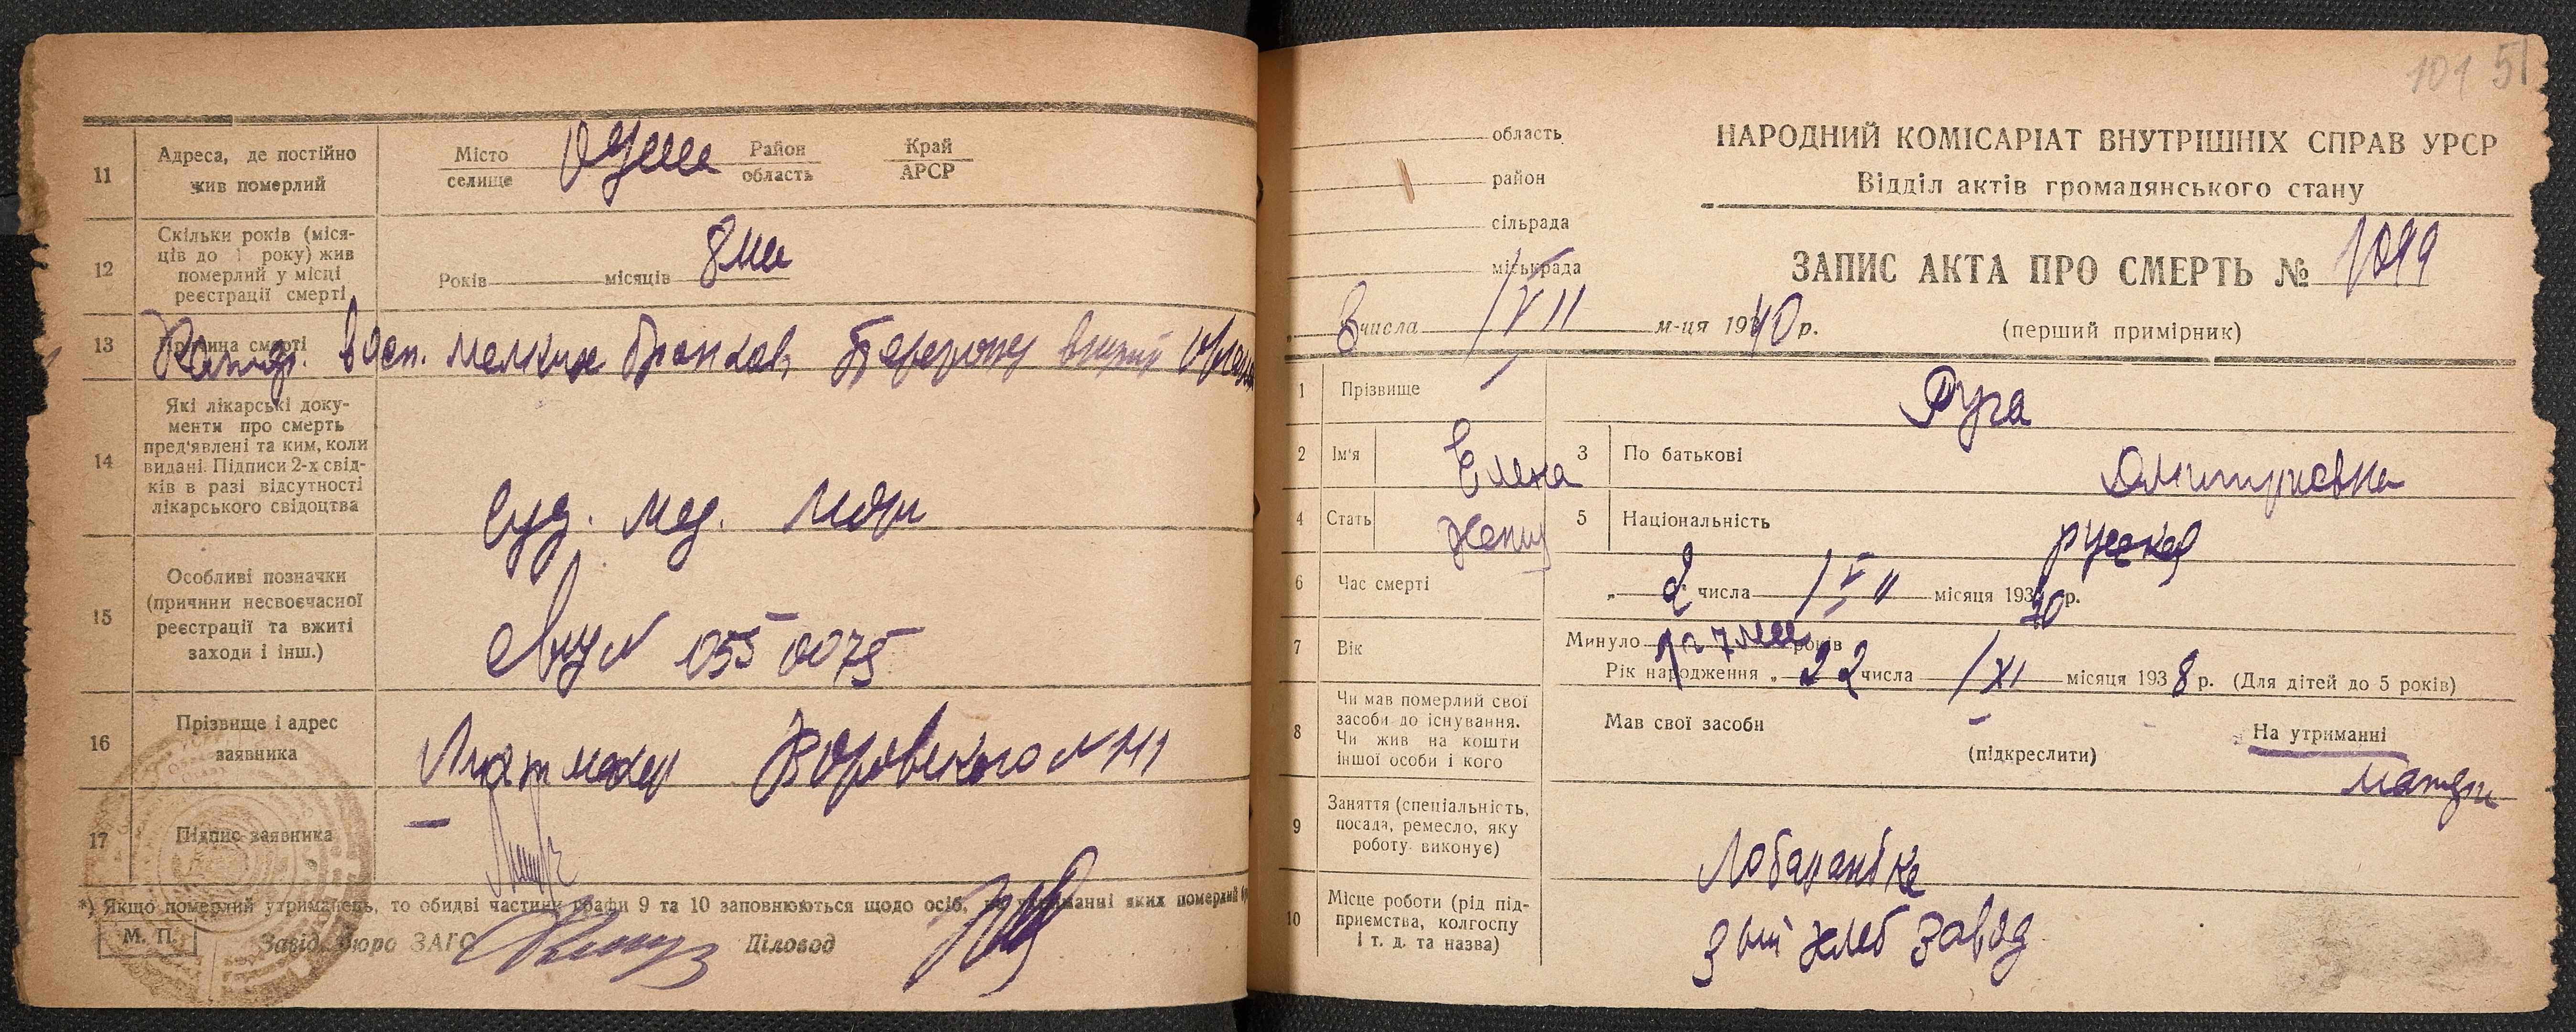 11
Адреса, де постійно
жив померлий
Місто
селище
Район
область
Край
АРСР
12
Скільки років (міся-
ців до 1 року) жив
померлий у місці
реєстрації смерті
Років
місяців
8
13
Причина смерті
восп. мелких бронхов,
14
Які лікарські доку-
менти про смерть
пред'явлені та ким, коли
видані. Підписи 2-х свід-
ків в разі відсутності
лікарського свідоцтва
Суд. мед.
15
Особливі позначки
(причини несвоєчасної
реєстрації та вжиті
заходи і інш.)
N 055 0075
16
Прізвище і адрес
заявника
Воровского N 141
17
Підпис заявника
*) Якщо померлий утриманець, то обидві частини графи 9 та 10 заповнюються щодо осіб, на утриманні яких померлий
М. П.
Завід. бюро ЗАГС
Діловод
101 51
область
район
сільрада
міськрада
3 числа VII м-ця 1940 р.
НАРОДНИЙ КОМІСАРІАТ ВНУТРІШНІХ СПРАВ УРСР
Відділ актів громадянського стану
ЗАПИС АКТА ПРО СМЕРТЬ № 1099
(перший примірник)
1
Прізвище
Руга
2
Ім'я
Елена
3
По батькові
Дмитриевна
4
Стать
женщ
5
Національність
русская
6
Час смерті
„ 2 числа VII місяця 1940 р.
7
Вік
Минуло 1 г 7 мес років
Рік народження „ 22 числа XI місяця 1938 р. (Для дітей до 5 років)
8
Чи мав померлий свої
засоби до існування.
Чи жив на кошти
іншої особи і кого
Мав свої засоби
(підкреслити)
На утриманні
матери
9
Заняття (спеціальність,
посада, ремесло, яку
роботу виконує)
10
Місце роботи (рід під-
приємства, колгоспу
і т. д. та назва)
3 ый хлеб завод